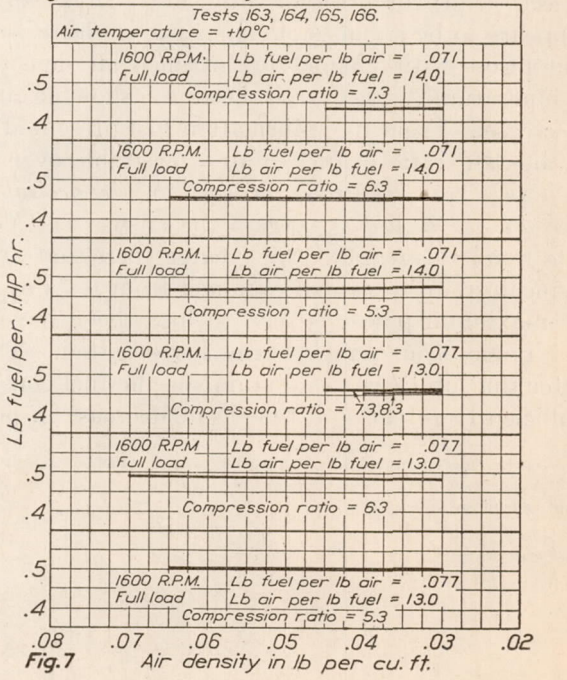 Tests 163, 164, 165, 166.
Air temperature = +10°C
1600 R.P.M. Lb fuel per lb air = .071
Full load Lb air per lb fuel = 14.0
Compression ratio = 7.3
.5
.4
1600 R.P.M. Lb fuel per lb air = .071
Full load Lb air per lb fuel = 14.0
Compression ratio = 6.3
.5
.4
1600 R.P.M. Lb fuel per lb air = .071
Full load Lb air per lb fuel = 14.0
Compression ratio = 5.3
.5
.4
1600 R.P.M. Lb fuel per lb air = .077
Full load Lb air per lb fuel = 13.0
Compression ratio = 7.3,8.3
.5
.4
1600 R.P.M Lb fuel per lb air = .077
Full load Lb air per lb fuel = 13.0
Compression ratio = 6.3
.5
.4
1600 R.P.M. Lb fuel per lb air = .077
Full load Lb air per lb fuel = 13.0
Compression ratio = 5.3
.5
.4
Lb fuel per I.HP hr.
.08 .07 .06 .05 .04 .03 .02
Fig.7 Air density in lb per cu. ft.